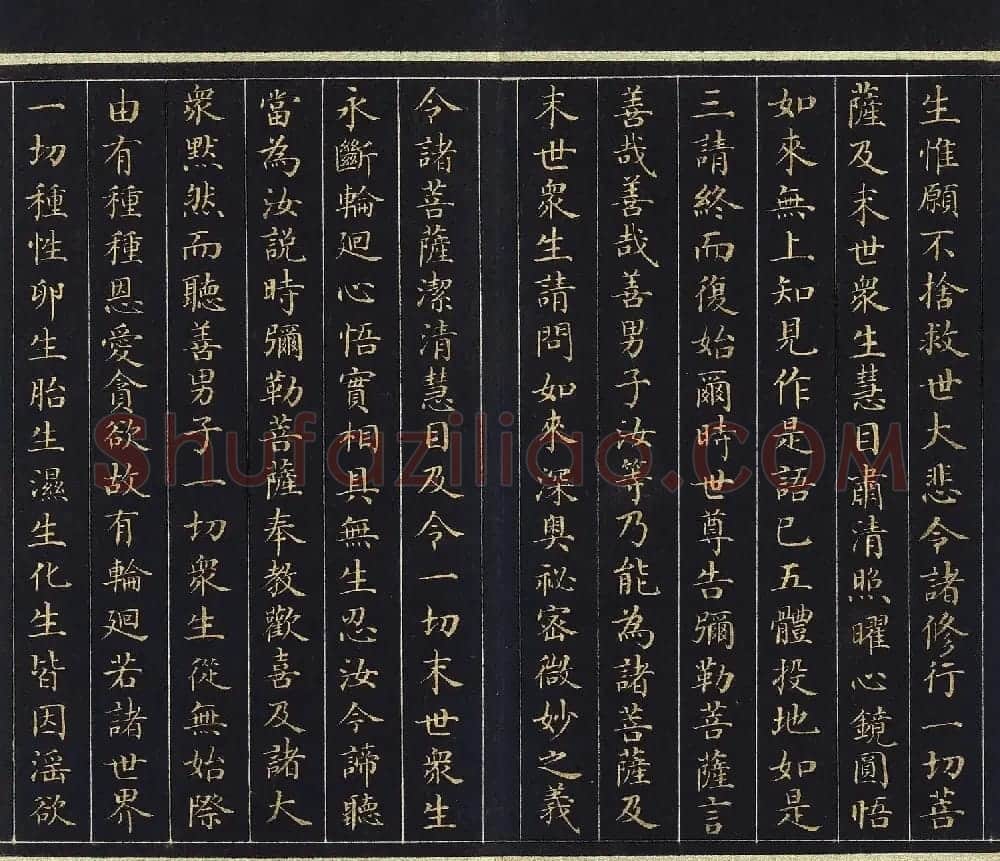 生惟願不捨救世大悲令諸修行一切菩
薩及末世衆生慧目肅清照曜心鏡圓悟
如來無上知見作是語已五體投地如是
三請終而復始爾時世尊告彌勒菩薩言
善哉善哉善男子汝等乃能為諸菩薩及
末世衆生請問如來深奧祕密微妙之義
令諸菩薩潔清慧目及令一切末世衆生
永斷輪廻心悟實相具無生忍汝今諦聽
當為汝説時彌勒菩薩奉教歡喜及諸大
衆黙然而聽善男子一切衆生從無始際
由有種種恩愛貪欲故有輪廻若諸世界
一切種性卵生胎生濕生化生皆因淫欲
Shufaziliao.COM